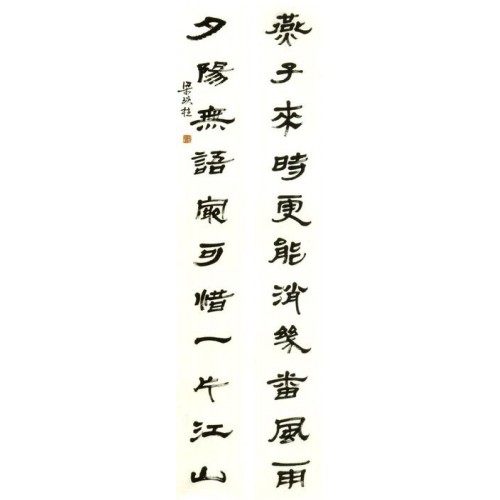 燕子來時更能消幾番風雨
夕陽無語最可惜一片江山